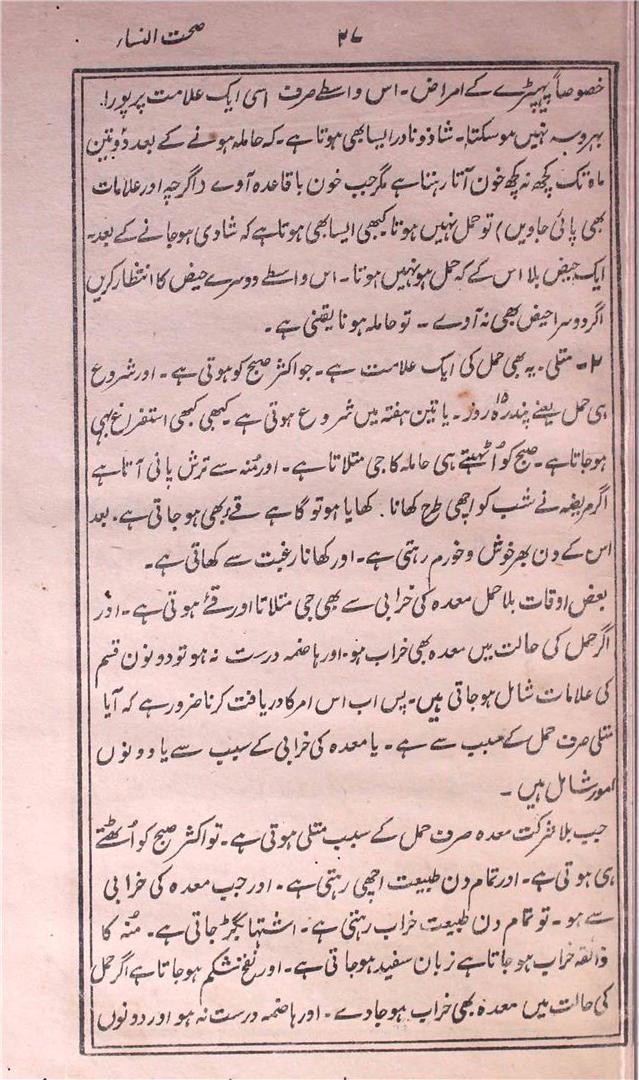 صحت النساء
۲۷
خصوصاً پھیپڑے کے امراض۔ اس واسطے صرف اسی ایک علامت پر پورا
بہروسہ نہیں ہوسکتا۔ شاذ و نادر ایسا بھی ہوتا ہے۔ کہ حاملہ ہونے کے بعد دو تین
ماہ تک کچھ نہ کچھ خون آتا رہتا ہے مگر جب خون باقاعدہ آوے (اگرچہ اور علامات
بھی پائی جاویں) تو حمل نہیں ہوتا کبھی ایسا بھی ہوتا ہے کہ شادی ہوجانے کے بعد۔
ایک حیض بلا اس کے کہ حمل ہو نہیں ہوتا۔ اس واسطے دوسرے حیض کا انتظار کریں
اگر دوسرا حیض بھی نہ آوے ۔۔ تو حاملہ ہونا یقینی ہے۔
۲۔ متلی۔ یہ بھی حمل کی ایک علامت ہے۔ جو اکثر صبح کو ہوتی ہے۔ اور شروع
ہی حمل یعنے پندرہ ۱۵ روز۔ یا تین ہفتہ میں شروع ہوتی ہے۔ کبھی کبھی استفراغ بہی
ہوجاتا ہے۔ صبح کو اُٹھتے ہی حاملہ کا جی متلاتا ہے۔ اور مُنہ سے ترش پانی آتا ہے
اگر مریضہ نے شب کو اچھی طرح کھانا۔ کھایا ہو تو گاہے قے بھی ہوجاتی ہے۔ بعد
اس کے دن بھر خوش و خورم رہتی ہے۔ اور کھانا رغبت سے کھاتی ہے۔
بعض اوقات بلا حمل معدہ کی خرابی سے بھی جی متلاتا اور قے ہوتی ہے۔ اور
اگر حمل کی حالت میں معدہ بھی خراب ہو۔ اور ہاضمہ درست نہ ہو تو دونوں قسم
کی علامات شامل ہوجاتی ہیں۔ پس اب اس امر کا دریافت کرنا ضرور ہے کہ آیا
متلی صرف حمل کے سبب سے ہے۔ یا معدہ کی خرابی کے سبب سے یا دونوں
امور شامل ہیں ۔
جب بلا شرکت معدہ صرف حمل کے سبب متلی ہوتی ہے۔ تو اکثر صبح کو اُٹھتے
ہی ہوتی ہے۔ اور تمام دن طبیعت اچھی رہتی ہے۔ اور جب معدہ کی خرابی
سے ہو۔ تو تمام دن طبیعت خراب رہتی ہے۔ اشتہا بگڑ جاتی ہے۔ مُنہ کا
ذائقہ خراب ہوجاتا ہے زبان سفید ہوجاتی ہے۔ اور نفخ شکم ہوجاتا ہے اگر حمل
کی حالت میں معدہ بھی خراب ہوجاوے۔ اور ہاضمہ درست نہ ہو اور دونوں